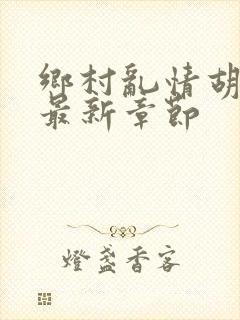 鄉村亂情胡
最新章節
燈盞香客